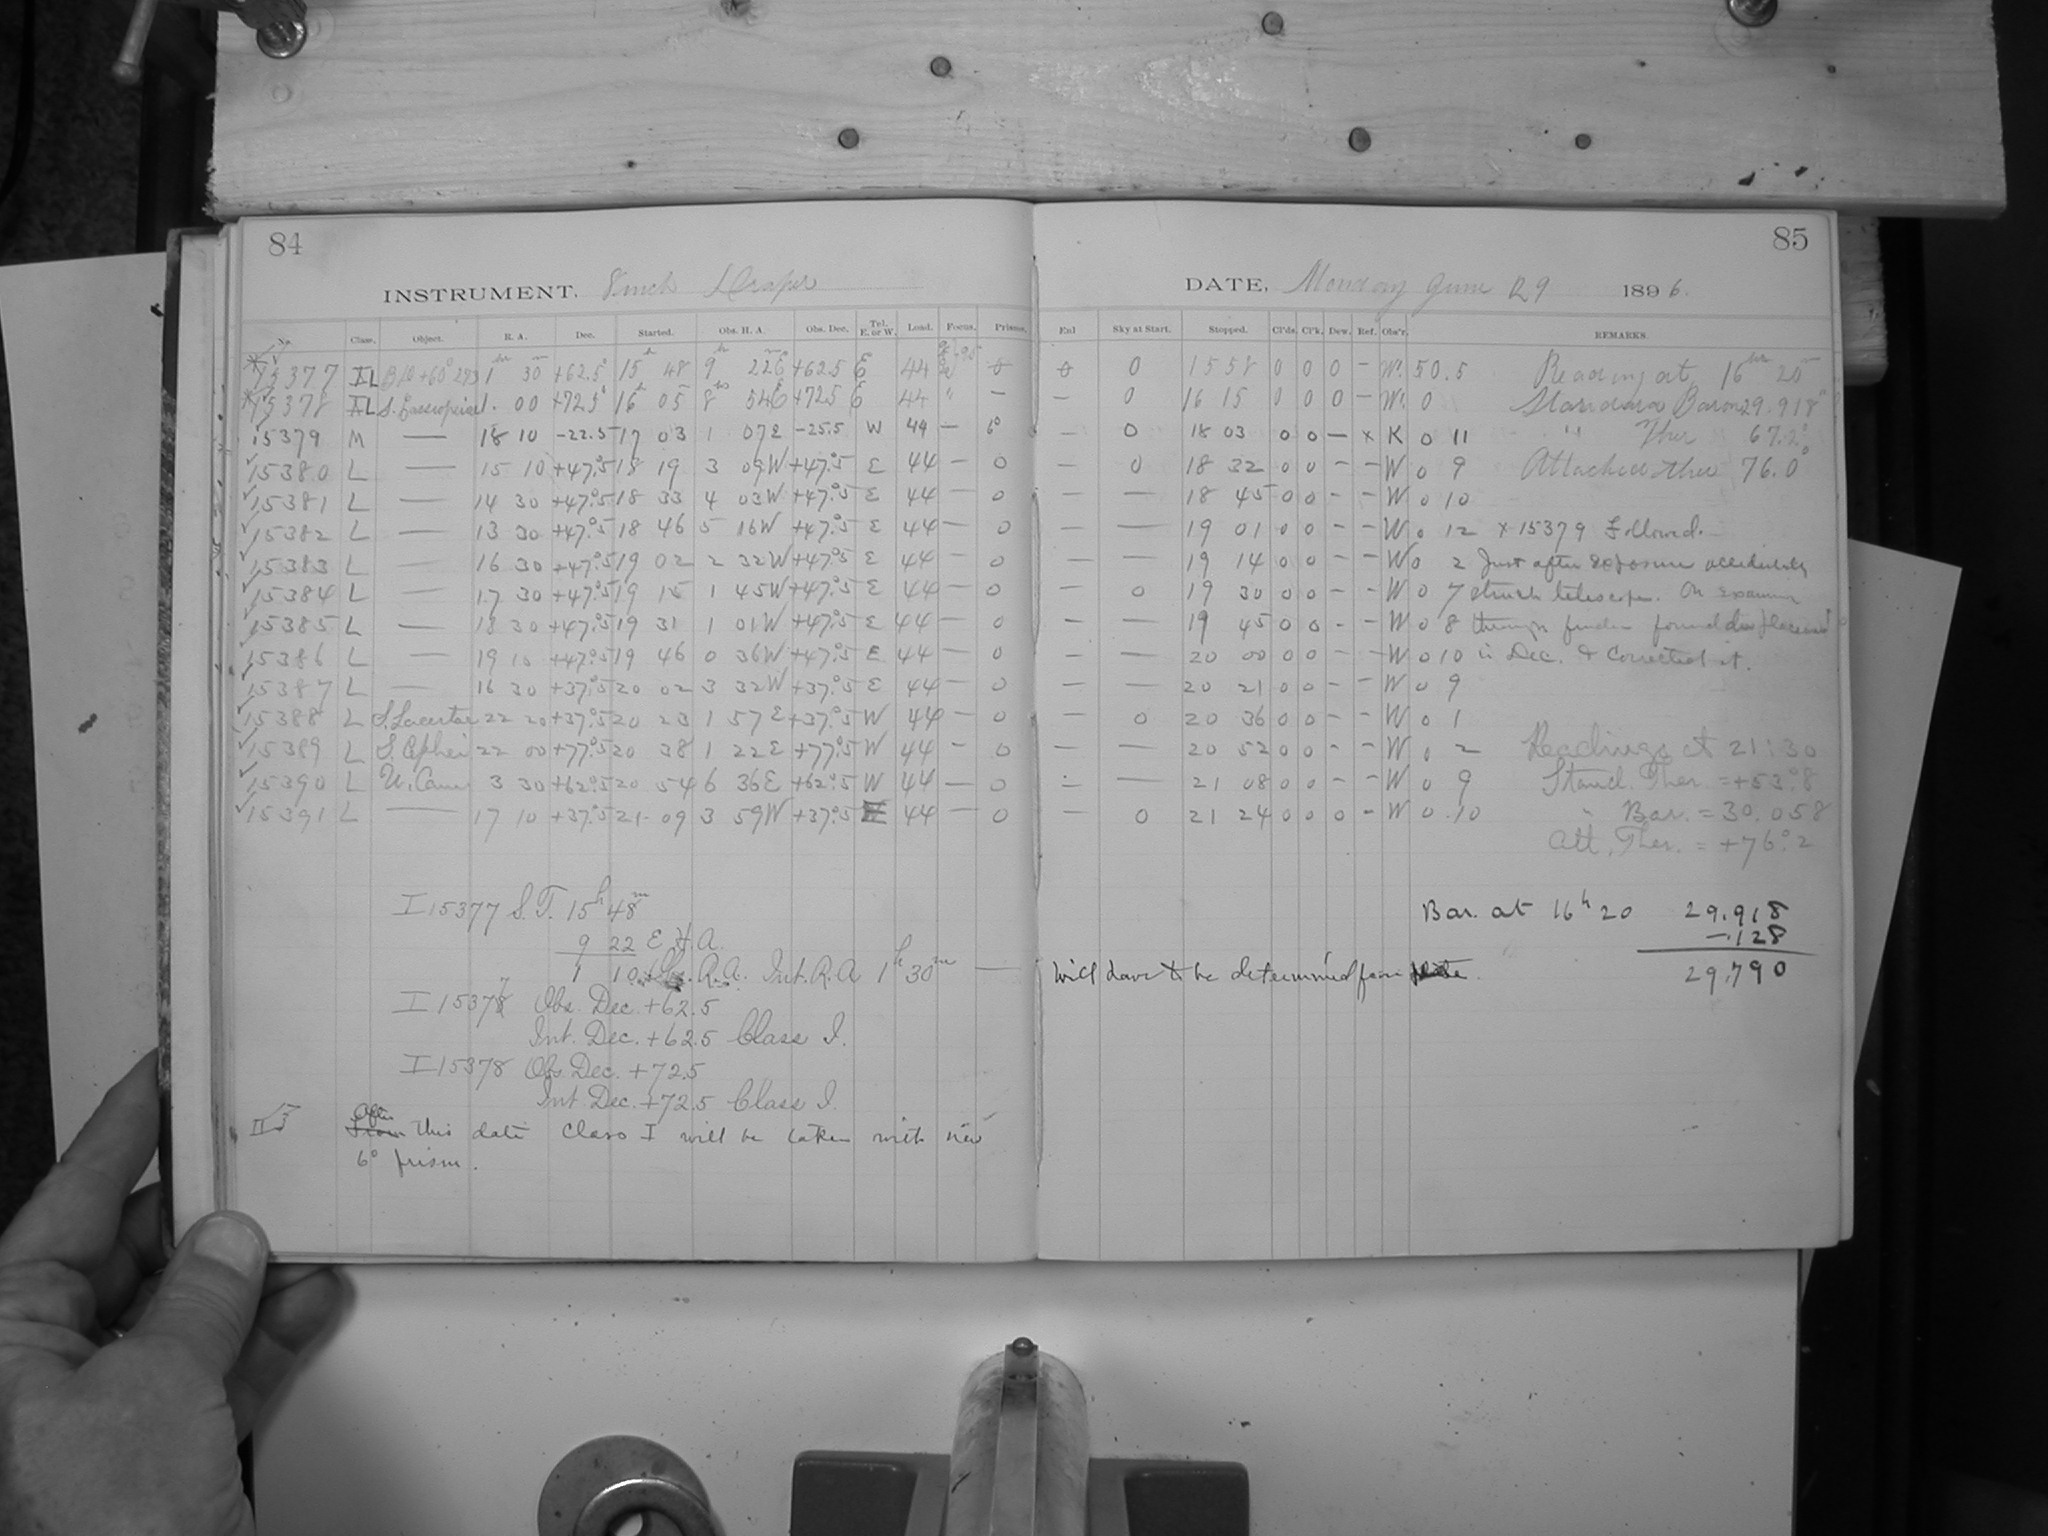 84
INSTRUMENT, 8 inch Draper
Class. Object. R. A. Dec. Started. Obs. H. A. Obs. Dec. Tel. E. or W. Load. Focus. Prisms.
15377 IL BD +60° 293 1h 30m +62.5° 15h 48 9h 22mE +62.5 E 44
15378 IL S. Cassiopeiae 1. 00 +72.5° 16h 05 8 54E +72.5 E 44 " —
15379 M — 18 10 -22.5 17 03 1 07E -25.5 W 49 — 6°
15380 L — 15 10 +47°.5 18 19 3 09W +47°.5 E 44 — 0
15381 L — 14 30 +47°.5 18 33 4 03W +47°.5 E 44 — 0
15382 L — 13 30 +47°.5 18 46 5 16W +47°.5 E 44 — 0
15383 L — 16 30 +47°.5 19 02 2 32W +47°.5 E 44 — 0
15384 L — 17 30 +47°.5 19 15 1 45W +47°.5 E 44 — 0
15385 L — 18 30 +47°.5 19 31 1 01W +47°.5 E 44 — 0
15386 L — 19 10 +47°.5 19 46 0 36W +47°.5 E 44 — 0
15387 L — 16 30 +37°.5 20 02 3 32W +37°.5 E 44 — 0
15388 L S. Lacertae 22 20 +37°.5 20 23 1 57E +37°.5 W 44 — 0
15389 L S. Cephei 22 00 +77°.5 20 38 1 22E +77°.5 W 44 — 0
15390 L U. Cam 3 30 +62°.5 20 54 6 36E +62°.5 W 44 — 0
15391 L — 17 10 +37°.5 21 09 3 59W +37°.5 E 44 — 0
I 15377 S.T. 15h 48m
9 22 E H.A.
1 10 Obs. R.A. Int. R.A 1h 30m — will have to be determined from plate.
I 15377 Obs. Dec. +62.5
Int. Dec. +62.5 Class I.
I 15378 Obs Dec. +72.5
Int. Dec. +72.5 Class I.
After
From this date Class I will be taken with new
6° prism.
85
DATE, Monday June 29 1896.
Enl Sky at Start. Stopped. Cl'ds. Cl'k. Dew. Ref. Obs'r. REMARKS.
0 0 15 58 0 0 0 – W. 50.5 Reading at 16hr 20m
— 0 16 15 0 0 0 – W. 0 Standard Barom 29.918
— 0 18 03 0 0 — x K 0 11 " Ther 67.2°
— 0 18 32 0 0 – – W 0 9 Attached ther 76.0°
— — 18 45 0 0 – – W 0 10
— — 19 01 0 0 – – W 0 12 x 15379 Followed.
— — 19 14 0 0 – – W 0 2 Just after exposure accidentally
— 0 19 30 0 0 – – W 0 7 struck telescope. On examin
— — 19 45 0 0 – – W 0 8 through finder found displacemt
— — 20 00 0 0 – – W 0 10 in Dec. & corrected it.
— — 20 21 0 0 – – W 0 9
— 0 20 36 0 0 – – W 0 1
— — 20 52 0 0 – – W 0 2 Readings at 21:30
— — 21 08 0 0 – – W 0 9 Stand. Ther. = +53°.8
— 0 21 24 0 0 0 – W 0 10 " Bar. = 30.058
Att. Ther. = +76°.2
Bar. at 16h 20 29.918
-.128
29.790